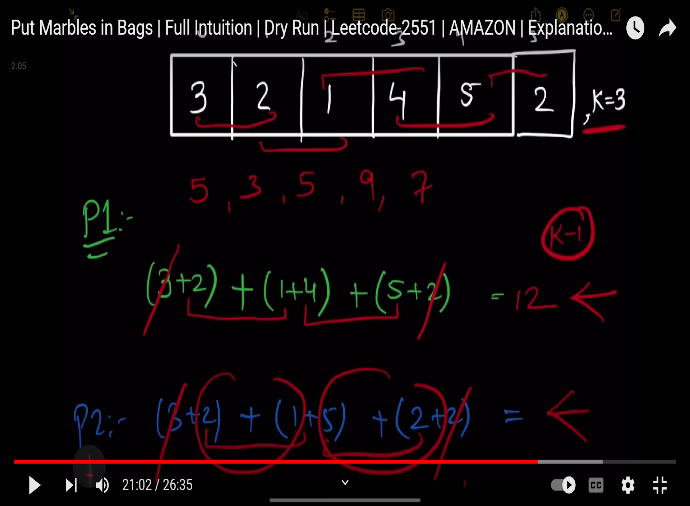 Put Marbles in Bags | Full Intuition | Dry Run | Leetcode-2551 | AMAZON | Explanatio...
2.05
0 2 3 4 5
3 2 1 4 5 2 , K=3
5, 3, 5, 9, 7
P1:-
K-1
(3+2) + (1+4) + (5+2) = 12 ←
P2:- (3+2) + (1+5) + (2+2) = ←
21:02 / 26:35
CC